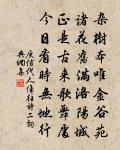 杂樹本唯金谷苑
諸花舊滿洛陽城
正是古來歌舞處
今日看時無地行
庾信代人傷往詩二詞
典網集